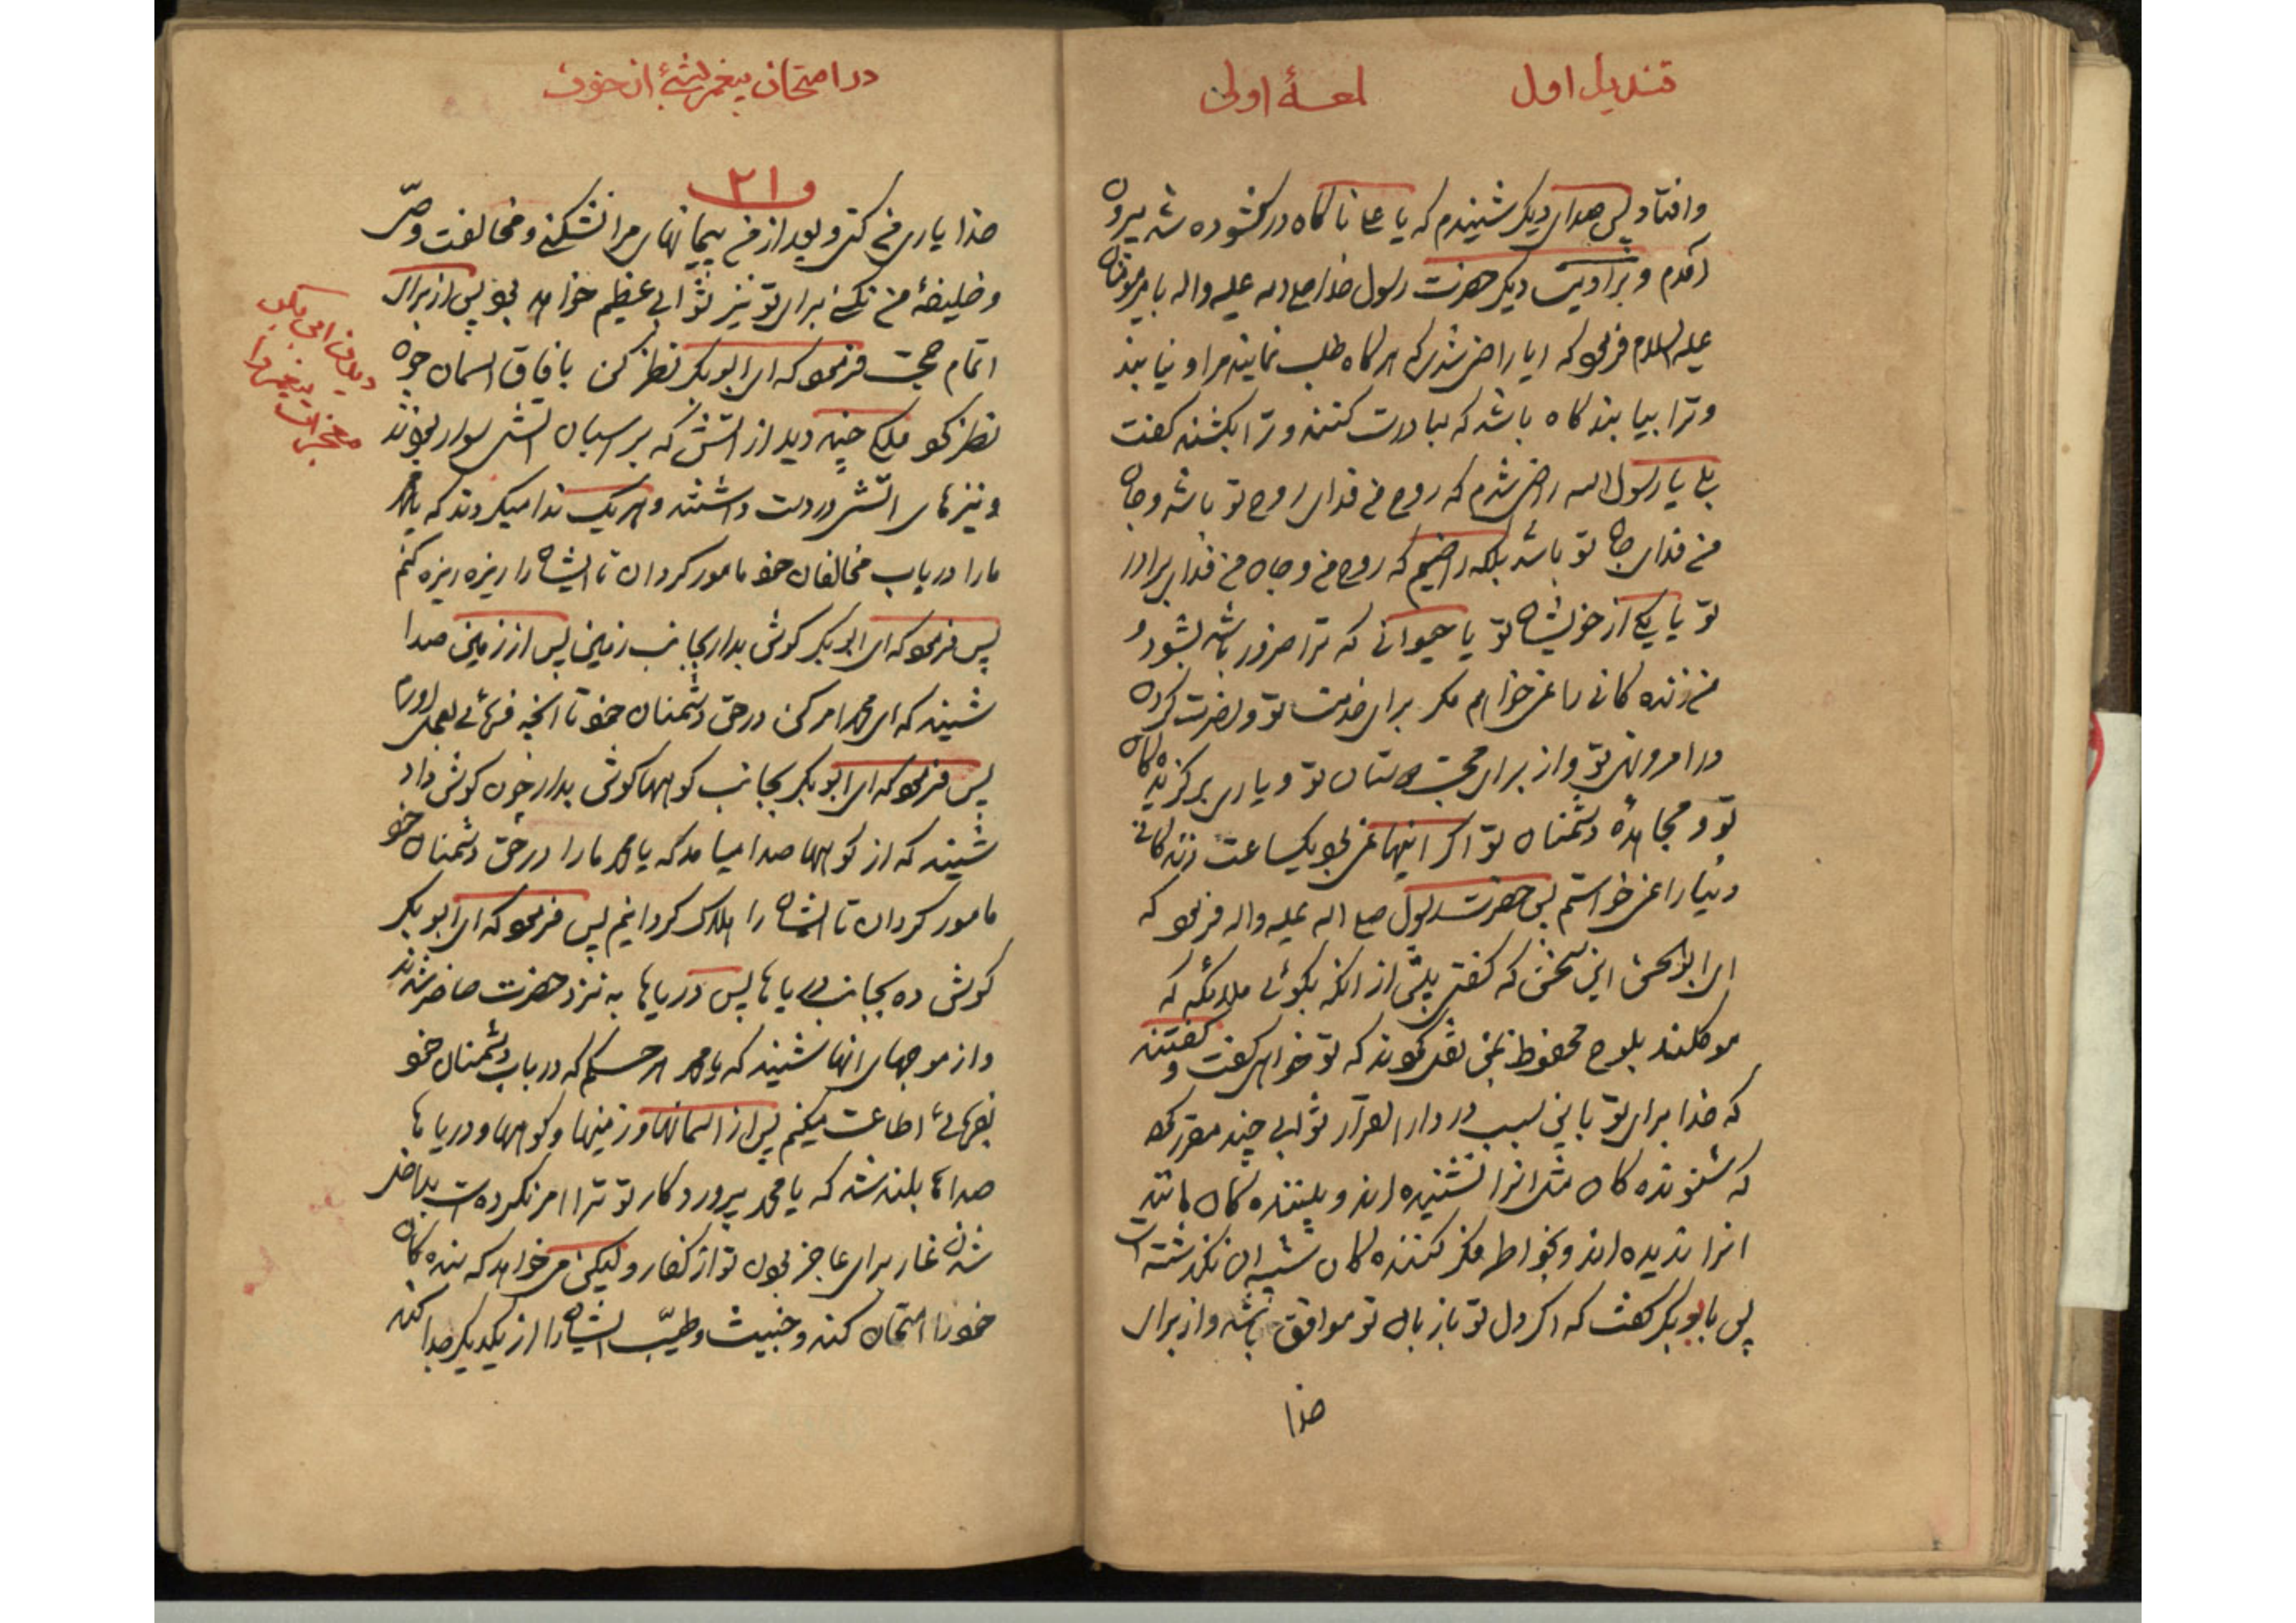 قندیل اول
لمعهٔ اولی
وافتاد پس صدای دیکر شنیدم که یا علی ناکاه در کشوده شد بیرون
آمدم و بروایت دیکر حضرت رسول خدا صلی الله علیه واله با امیرمومنان
علیه السلام فرمود که ایا راضی شدی که هرکاه طلب نمایند مرا و نیابند
و ترا بیابند کاه باشد که مبادرت کنند و ترا بکشند کفت
بلی یا رسول الله راضی شدم که روح من فدای روح تو باشد و جان
من فدای جان تو باشد بلکه راضیم که روح من و جان من فدای برادر
تو یا یکی از خویشان تو یا حیوانی که ترا ضرور باشد بشود و
من زنده کانی را نمی خواهم مکر برای خدمت تو و نصرت کردن
در امر و نهی تو و از برای محبت دوستان تو و یاری برکزیده کان
تو و مجاهدهٔ دشمنان تو اکر اینها نمی بود یکساعت زنده کانی
دنیا را نمی خواستم پس حضرت رسول صلی اله علیه واله فرمود که
ای ابو الحسن این سخن که کفتی پیش از انکه بکوئی ملائکه که
موکلند بلوح محفوظ بمن نقل نمودند که تو خواهی کفت و کفتند
که خدا برای تو باین سبب در دار القرار ثوابی چند مقرر کرده
که شنونده کان مثل انرا نشنیده اند و بیننده کان مانند
انرا ندیده اند و بخواطر فکر کننده کان شبیه ان نکذشته است
پس بابوبکر کفت که اکر دل تو با زبان تو موافق باشد و از برای
خدا
در امتحان پیغمبر
۲۱
خدا یاری من کنی و بعد از من پیمانهای مرا نشکنی و مخالفت وصی
و خلیفهٔ من نکنی برای تو نیز ثوابی عظیم خواهد بود پس از برای
اتمام حجت فرمود که ای ابوبکر نظر کن بافاق اسمان چون
نظر کرد ملکی چند دید از اتش که بر اسبان اتش سوار بودند
و نیزهای اتش در دست داشتند و هریک ندا میکردند که یا محمد
ما را در باب مخالفان خود مامور کردان تا ایشان را ریزه ریزه کنیم
پس فرمود که ای ابوبکر کوش بدار بجانب زمین پس از زمین صدا
شنید که ای محمد امر کن در حق دشمنان خود تا انچه فرمائی بعمل اورم
پس فرمود که ای ابوبکر بجانب کوهها کوش بدار چون کوش داد
شنید که از کوهها صدا میامد که یا محمد ما را در حق دشمنان خود
مامور کردان تا ایشان را هلاک کردانیم پس فرمود که ای ابوبکر
کوش ده بجانب دریاها پس دریاها به نزد حضرت حاضر شدند
و از موجهای انها شنید که یا محمد هر حکم که در باب دشمنان خود
بفرمائی اطاعت میکنیم پس از اسمانها و زمینها و کوهها و دریاها
صداها بلند شد که یا محمد پرورد کار تو ترا امر نکرده است بداخل
شدن غار برای عاجز بودن تو از کفار ولیکن می خواهد که بنده کان
خود را امتحان کند و خبیث و طیّب ایشان را از یکدیکر جدا کند
دیدن ابی بکر
معجزات پیغمبر را